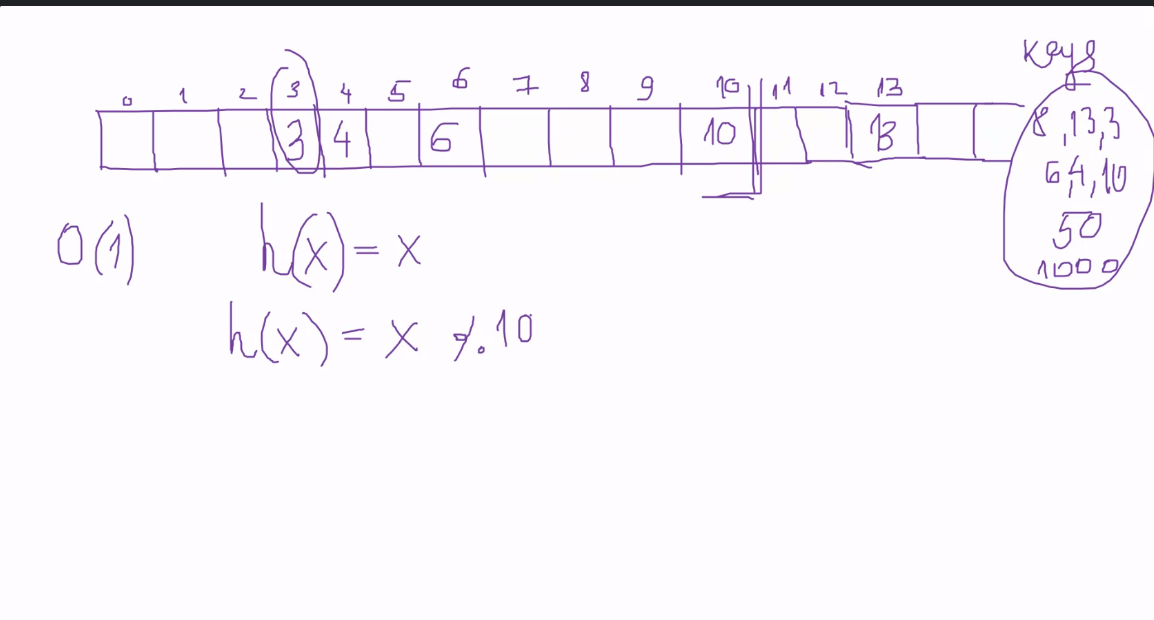 keys
0 1 2 3 4 5 6 7 8 9 10 11 12 13
3 4 6 10 13
8,13,3
6,4,10
50
1000
O(1) h(x) = x
h(x) = x %.10